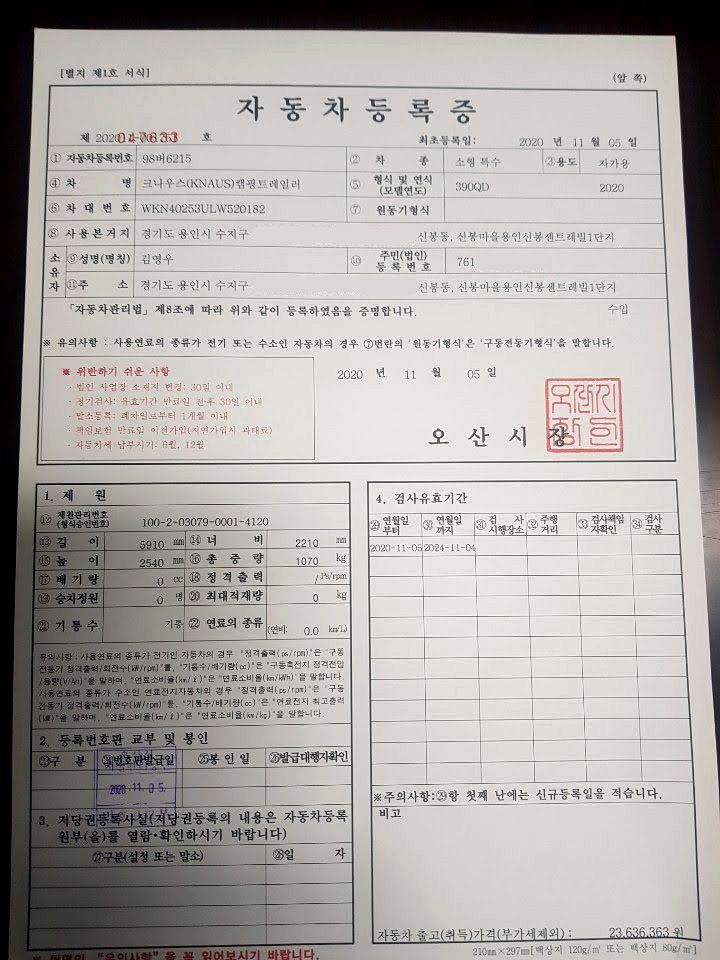 [별지 제1호 서식]
(앞 쪽)
자동차등록증
제 2020 047633 호
최초등록일: 2020 년 11 월 05 일
① 자동차등록번호 98버6215 ② 차 종 소형 특수 ③용도 자가용
④ 차 명 크나우스(KNAUS)캠핑트레일러 ⑤ 형식 및 연식 (모델연도) 390QD 2020
⑥ 차 대 번 호 WKN40253ULW520182 ⑦ 원동기형식
⑧ 사용본거지 경기도 용인시 수지구 신봉동, 신봉마을용인신봉센트레빌1단지
소유자 ⑨성명(명칭) 김영우 ⑩ 주민(법인) 등 록 번 호 761
⑪주 소 경기도 용인시 수지구 신봉동, 신봉마을용인신봉센트레빌1단지
「자동차관리법」제8조에 따라 위와 같이 등록하였음을 증명합니다. 수입
※ 유의사항 : 사용연료의 종류가 전기 또는 수소인 자동차의 경우 ⑦번란의 '원동기형식'은 '구동전동기형식'을 말합니다.
※ 위반하기 쉬운 사항
· 법인 사업장 소재지 변경: 30일 이내
· 정기검사: 유효기간 만료일 전·후 30일 이내
· 말소등록: 폐차일로부터 1개월 이내
· 책임보험 만료일 이전가입(지연가입시 과태료)
· 자동차세 납부시기: 6월, 12월
2020 년 11 월 05 일
오 산 시 장
1. 제 원
⑫ 제원관리번호 (형식승인번호) 100-2-03079-0001-4120
⑬ 길 이 5910 mm ⑭ 너 비 2210 mm
⑮ 높 이 2540 mm ⑯ 총 중 량 1070 kg
⑰ 배 기 량 0 cc ⑱ 정 격 출 력 / Ps/rpm
⑲ 승차정원 0 명 ⑳ 최대적재량 0 kg
㉑ 기 통 수 기통 ㉒ 연료의 종류 (연비: 0.0 km/L)
유의사항 : 사용연료의 종류가 전기인 자동차의 경우 "정격출력(ps/rpm)"은 "구동
전동기 정격출력/회전수(kW/rpm)"를, "기통수/배기량(cc)"은 "구동축전지 정격전압
/용량(V/Ah)"을 말하며, "연료소비율(km/ℓ)"은 "연료소비율(km/kWh)"을 말합니다.
사용연료의 종류가 수소인 연료전지자동차의 경우 "정격출력(ps/rpm)"은 "구동
전동기 정격출력/회전수(kW/rpm)"를, "기통수/배기량(cc)"은 "연료전지 최고출력
(kW)"을 말하며, "연료소비율(km/ℓ)"은 "연료소비율(km/kg)"을 말합니다.
2. 등록번호판 교부 및 봉인
㉓구 분 ㉔번호판발급일 ㉕봉 인 일 ㉖발급대행자확인
2020 .11. 05.
3. 저당권등록사실(저당권등록의 내용은 자동차등록
원부(을)를 열람·확인하시기 바랍니다)
㉗구분(설정 또는 말소) ㉘일 자
4. 검사유효기간
㉙ 연월일 부터 ㉚ 연월일 까지 ㉛ 검 사 시행장소 ㉜ 주행 거리 ㉝ 검사책임 자확인 ㉞ 검사 구분
2020-11-05 2024-11-04
※주의사항:㉙항 첫째 난에는 신규등록일을 적습니다.
비고
자동차 출고(취득)가격(부가세제외) : 23,636,363 원
210㎜×297㎜[백상지 120g/㎡ 또는 백상지 80g/㎡]
※ 뒷면의 "유의사항"을 꼭 읽어보시기 바랍니다.